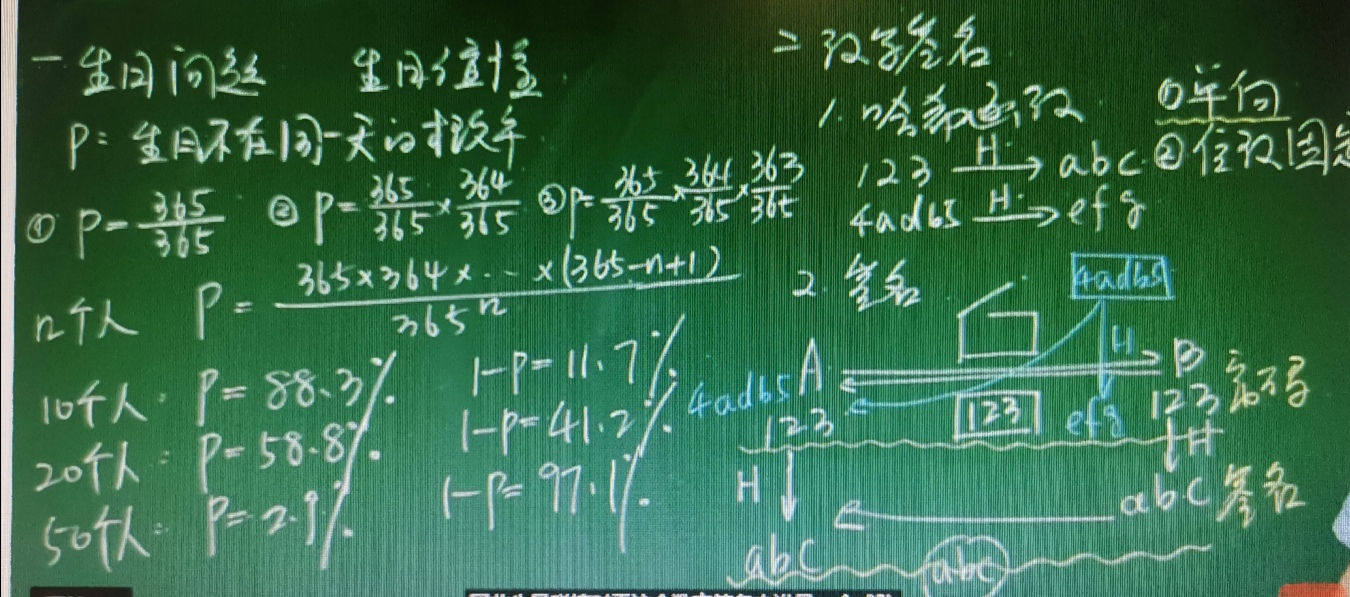 一 生日问题 生日位撞
P: 生日不在同一天的概率
① P=365/365 ② P=365/365×364/365 ③ P=365/365×364/365×363/365
n个人 P=365×364×...×(365-n+1)/365ⁿ
10个人: P=88.3% 1-P=11.7%
20个人: P=58.8% 1-P=41.2%
50个人: P=2.9% 1-P=97.1%
二 数字签名
1. 哈希函数 ①单向
123 H→ abc ②位数固定
4adb5 H→ efg
2. 签名 4adb5
H
4adb5 A B
123 123 efg 123 密码
H H
abc 签名
abc abc